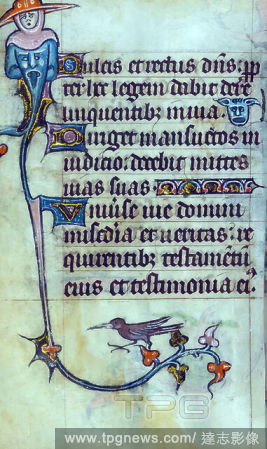 Dulcis et rectus dñs: ꝓp
ter hoc legem dabit dere
linquentibꝫ in uia.
Diriget mansuetos in
iudicio: docebit mittes
uias suas.
Vniuse uie domini
misc̃dia et ueritas: re
quirentibꝫ testamẽtũ
eius et testimonia ei⁹.
TPG
www.tpgnews.com/ 達志影像